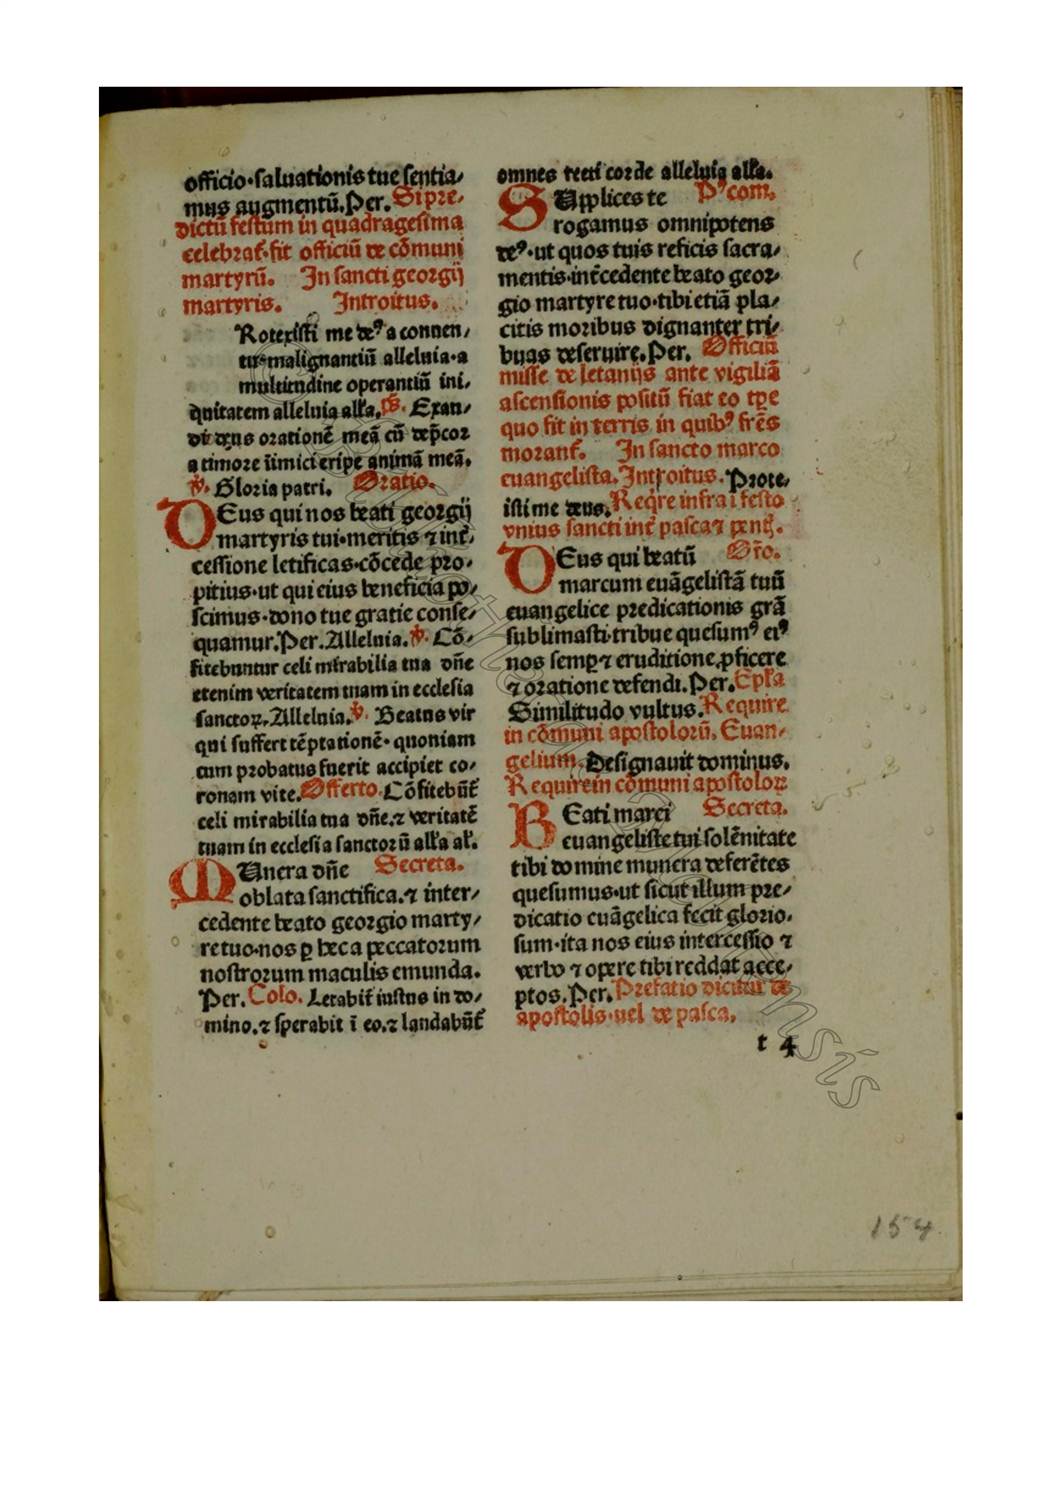 officio·saluationis tue sentia⸗
mus augmentū.Per. Si pre⸗
dictū festum in quadragesima
celebrat̄·fit officiū de cōmuni
martyrū. In sancti georgij
martyris. Introitus.
Rotexisti me deꝰ a conuen⸗
tu·malignantiū alleluia·a
multitudine operantiū ini⸗
quitatem alleluia all'a. ps̄. Exau⸗
di deus orationē meā cū dep̄cor
a timore inimici eripe animā meā.
℣. Gloria patri. Oratio.
DEus qui nos beati georgij
martyris tui·meritis ⁊ int̄⸗
cessione letificas·cōcede pro⸗
pitius·ut qui eius beneficia po⸗
scimus·dono tue gratie conse⸗
quamur.Per. Alleluia. ℣. Cō⸗
fitebuntur celi mirabilia tua dn̄e
etenim veritatem tuam in ecclesia
sanctoꝝ. Alleluia. ℣. Beatus vir
qui suffert tēptationē· quoniam
cum probatus fuerit accipiet co⸗
ronam vite. Offerto. Cōfitebūt̄
celi mirabilia tua dn̄e.⁊ veritatē
tuam in ecclesia sanctorū all'a al'.
MUnera dn̄e Secreta.
oblata sanctifica.⁊ inter⸗
cedente beato georgio marty⸗
re tuo·nos ꝑ hec a peccatorum
nostrorum maculis emunda.
Per. Co͞io. Letabit̄ iustus in do⸗
mino.⁊ sperabit ī eo.⁊ laudabūt̄
omnes recti corde alleluia all'a.
SUpplices te Pꝰcom.
rogamus omnipotens
deꝰ·ut quos tuis reficis sacra⸗
mentis·int̄cedente beato geor⸗
gio martyre tuo·tibi etiā pla⸗
citis moribus dignanter tri⸗
buas deseruire.Per. Officiū
misse de letanijs ante vigiliā
ascensionis positū fiat eo tꝑe
quo fit in terris in quibꝰ fr̄es
morant̄. In sancto marco
euangelista. Introitus. Prote⸗
isti me deus. Reqre infra i festo
vnius sancti int̄ pasca ⁊ pent̄.
DEus qui beatū Or̄o.
marcum euāgelistā tuū
euangelice predicationis grā
sublimasti·tribue quesumꝰ eiꝰ
nos semꝑ·⁊ eruditione ꝓficere
⁊ oratione defendi.Per. Epl'a
Similitudo vultus. Require
in cōmuni apostolorū. Euan⸗
gelium. Designauit dominus.
Require in cōmuni apostoloꝝ
BEati marci Secreta.
euangeliste tui solēnitate
tibi domine munera deferētes
quesumus·ut sicut illum pre⸗
dicatio euāgelica fecit glorio⸗
sum·ita nos eius intercessio ⁊
verbo ⁊ opere tibi reddat acce⸗
ptos.Per. Prefatio dicitur de
apostolis·uel de pasca.
t 4
154